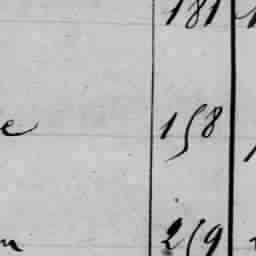 181
e 158
n 259